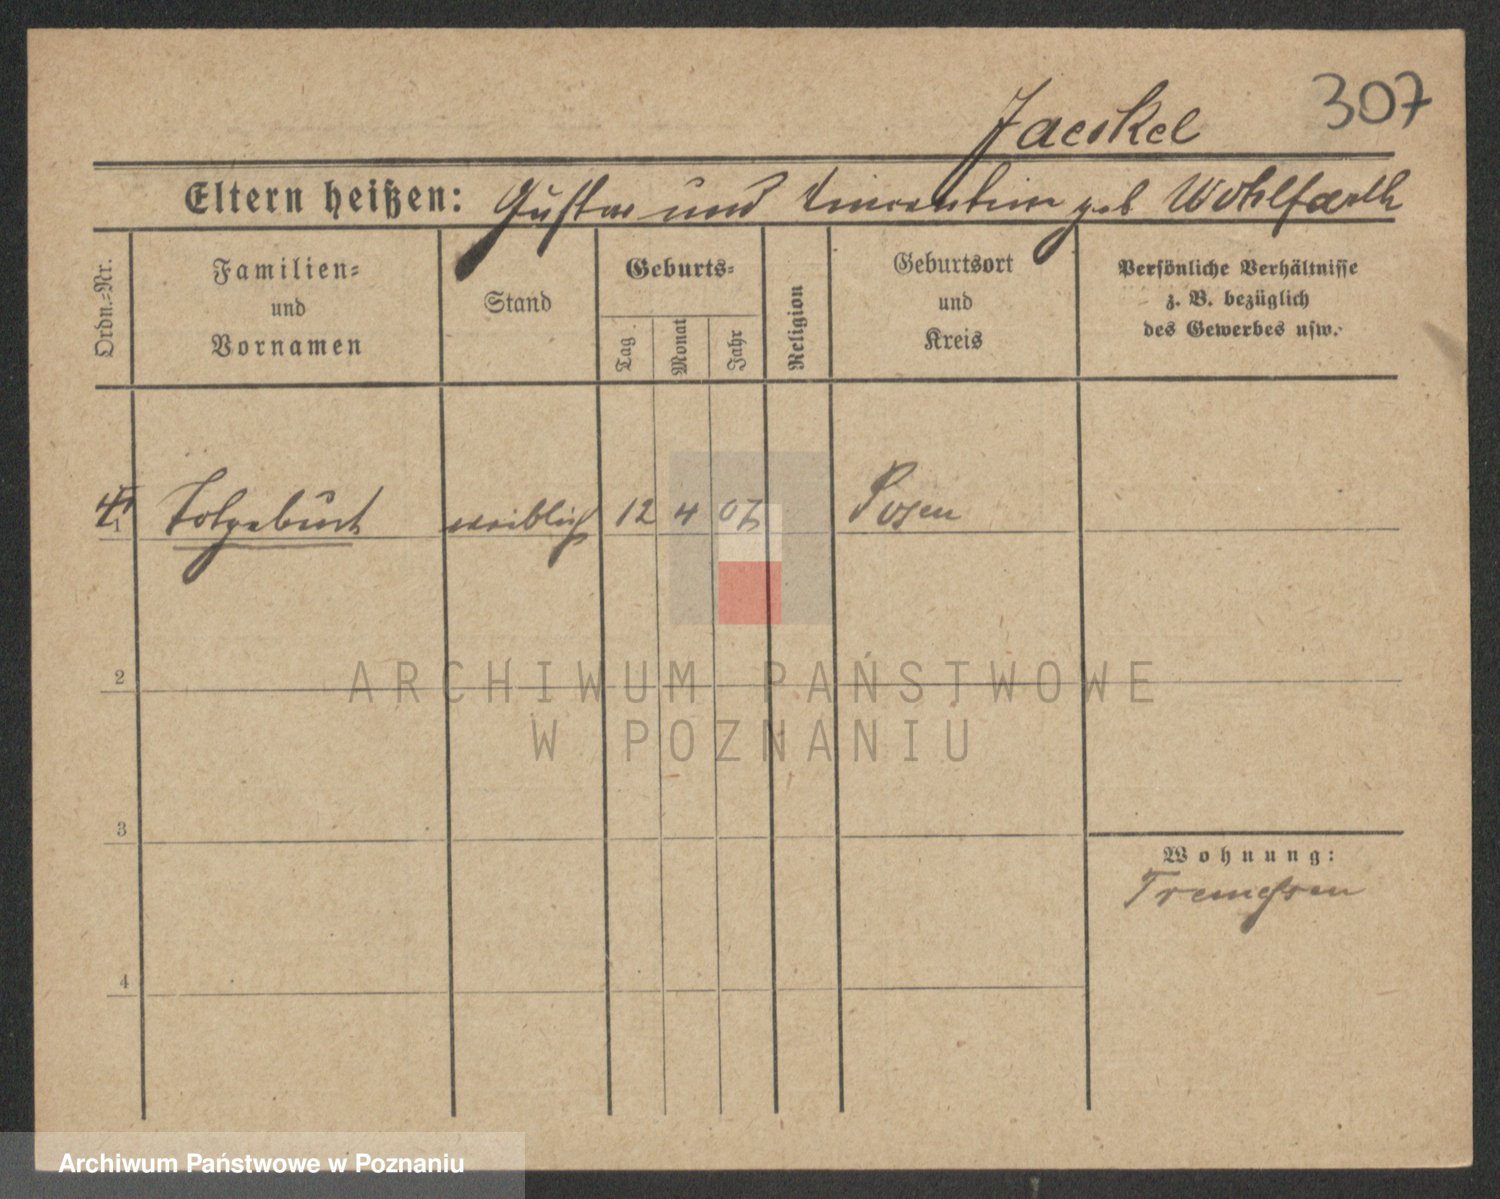 307
Jaeckel
Eltern heißen: Gustav und geb Wohlfarth
Ordn.=Nr.
Familien=
und
Vornamen
Stand
Geburts=
Tag.
Monat
Jahr
Religion
Geburtsort
und
Kreis
Persönliche Verhältnisse
z. B. bezüglich
des Gewerbes usw.
1 Totgeburt weiblich 12 4 07 Posen
2
3
4
Wohnung:
Tremessen
ARCHIWUM PAŃSTWOWE
W POZNANIU
Archiwum Państwowe w Poznaniu